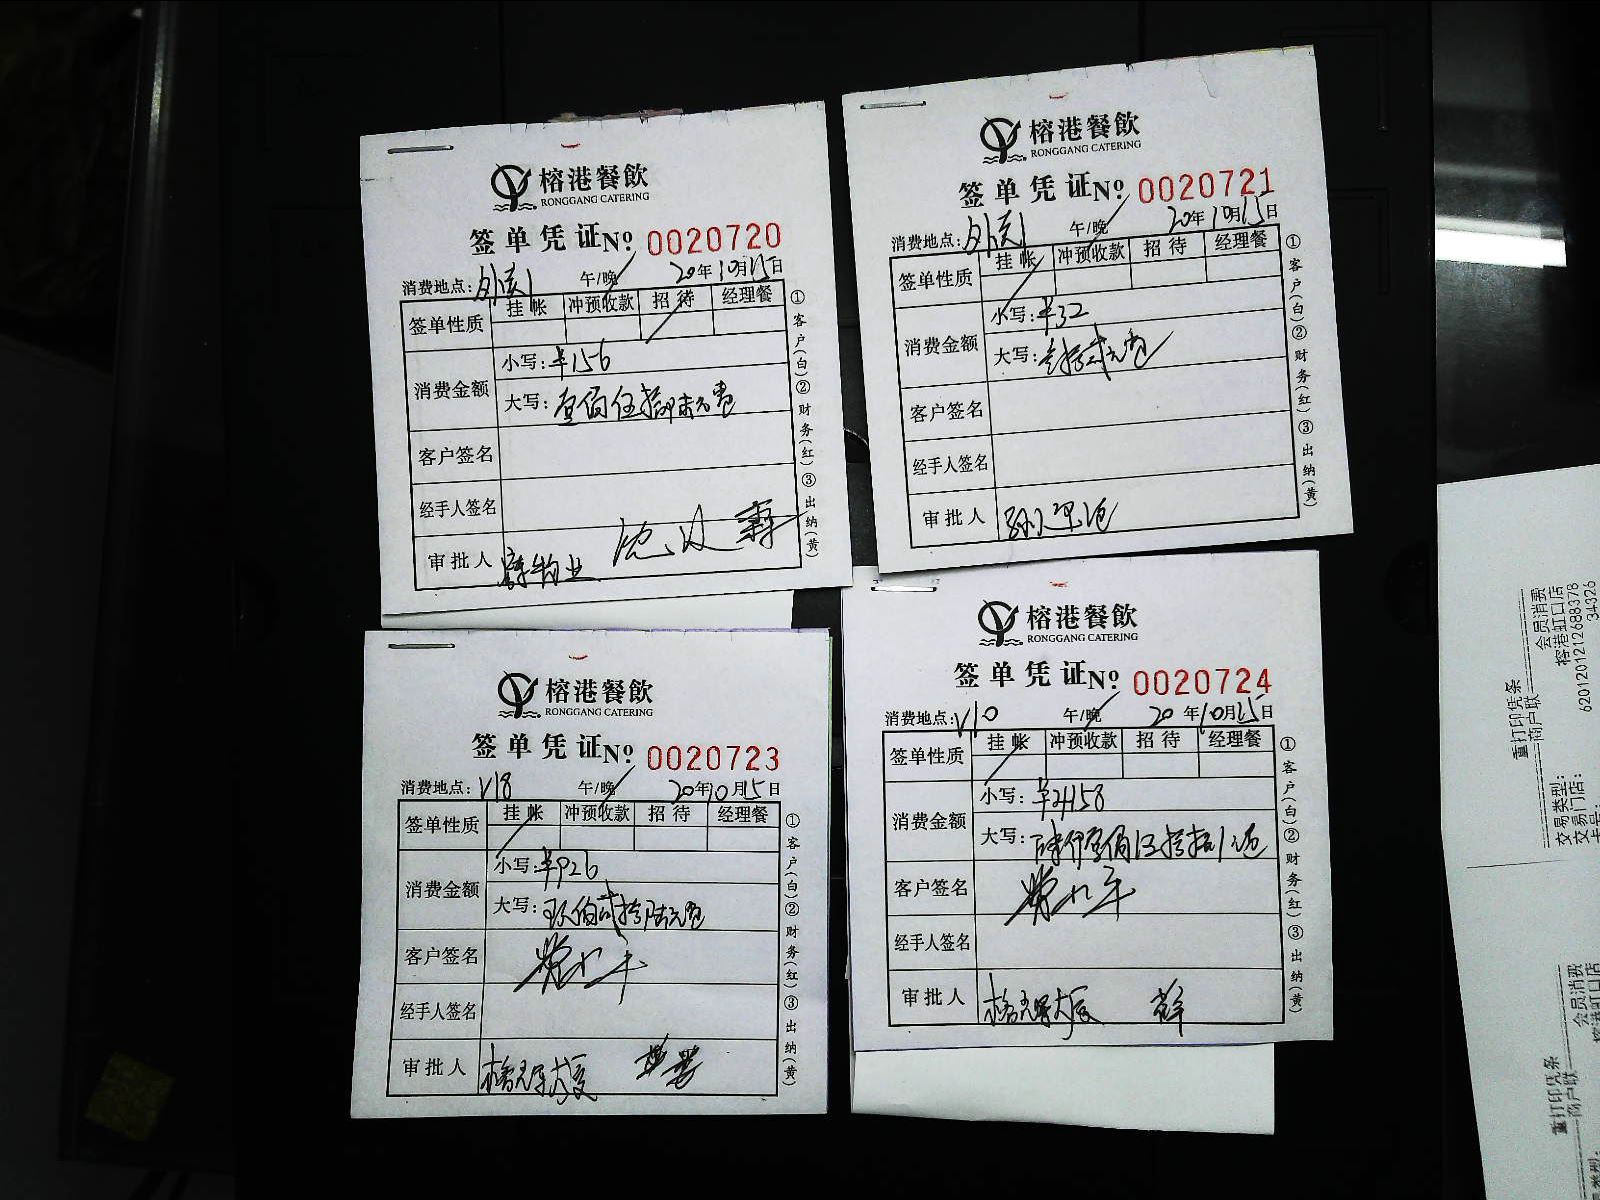 榕港餐飲
RONGGANG CATERING
签单凭证№ 0020720
消费地点: 午/晚 20年10月15日
签单性质 挂帐 冲预收款 招待 经理餐
消费金额 小写:¥156
大写:壹佰伍拾陆元
客户签名
经手人签名
审批人
①客户(白)②财务(红)③出纳(黄)
榕港餐飲
RONGGANG CATERING
签单凭证№ 0020721
消费地点: 午/晚 20年10月15日
签单性质 挂帐 冲预收款 招待 经理餐
消费金额 小写:¥32
大写:叁拾贰元
客户签名
经手人签名
审批人
①客户(白)②财务(红)③出纳(黄)
榕港餐飲
RONGGANG CATERING
签单凭证№ 0020723
消费地点:V18 午/晚 20年10月15日
签单性质 挂帐 冲预收款 招待 经理餐
消费金额 小写:¥926
大写:玖佰贰拾陆元
客户签名
经手人签名
审批人
①客户(白)②财务(红)③出纳(黄)
榕港餐飲
RONGGANG CATERING
签单凭证№ 0020724
消费地点:V10 午/晚 20年10月15日
签单性质 挂帐 冲预收款 招待 经理餐
消费金额 小写:
大写:
客户签名
经手人签名
审批人
①客户(白)②财务(红)③出纳(黄)
重打印凭条
商户联
交易类型: 会员消费
交易门店: 榕港虹口店
卡号: 6201201212688378
34326
重打印凭条
商户联
会员消费
榕港虹口店